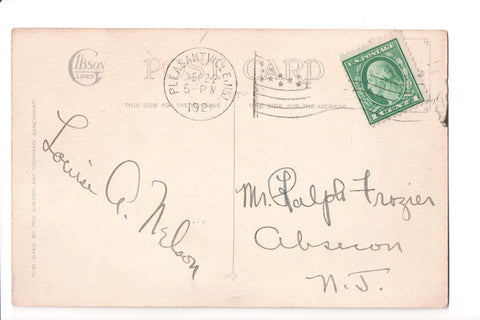 GIBSON
LINES
POST CARD
THIS SIDE FOR THE MESSAGE
THIS SIDE FOR THE ADDRESS
PLEASANTVILLE, N.J.
5-PM
192
U.S. POSTAGE
1 CENT 1
Louise A. Nelson
Mr. Ralph Frozier
Absecon
N. J.
PUBLISHED BY THE GIBSON ART COMPANY, CINCINNATI